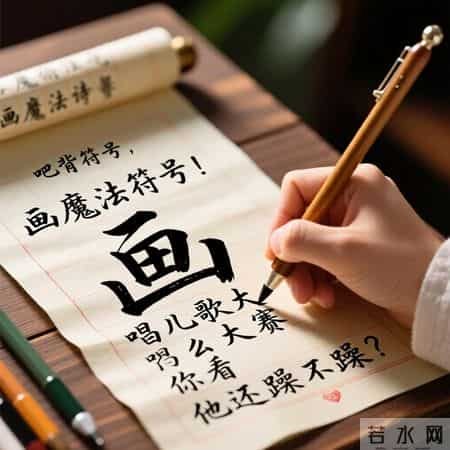 画魔法诗
吧背符号，
画魔法符号！
画
唱儿歌大
么大赛
你看
他还躁不躁？
若水网